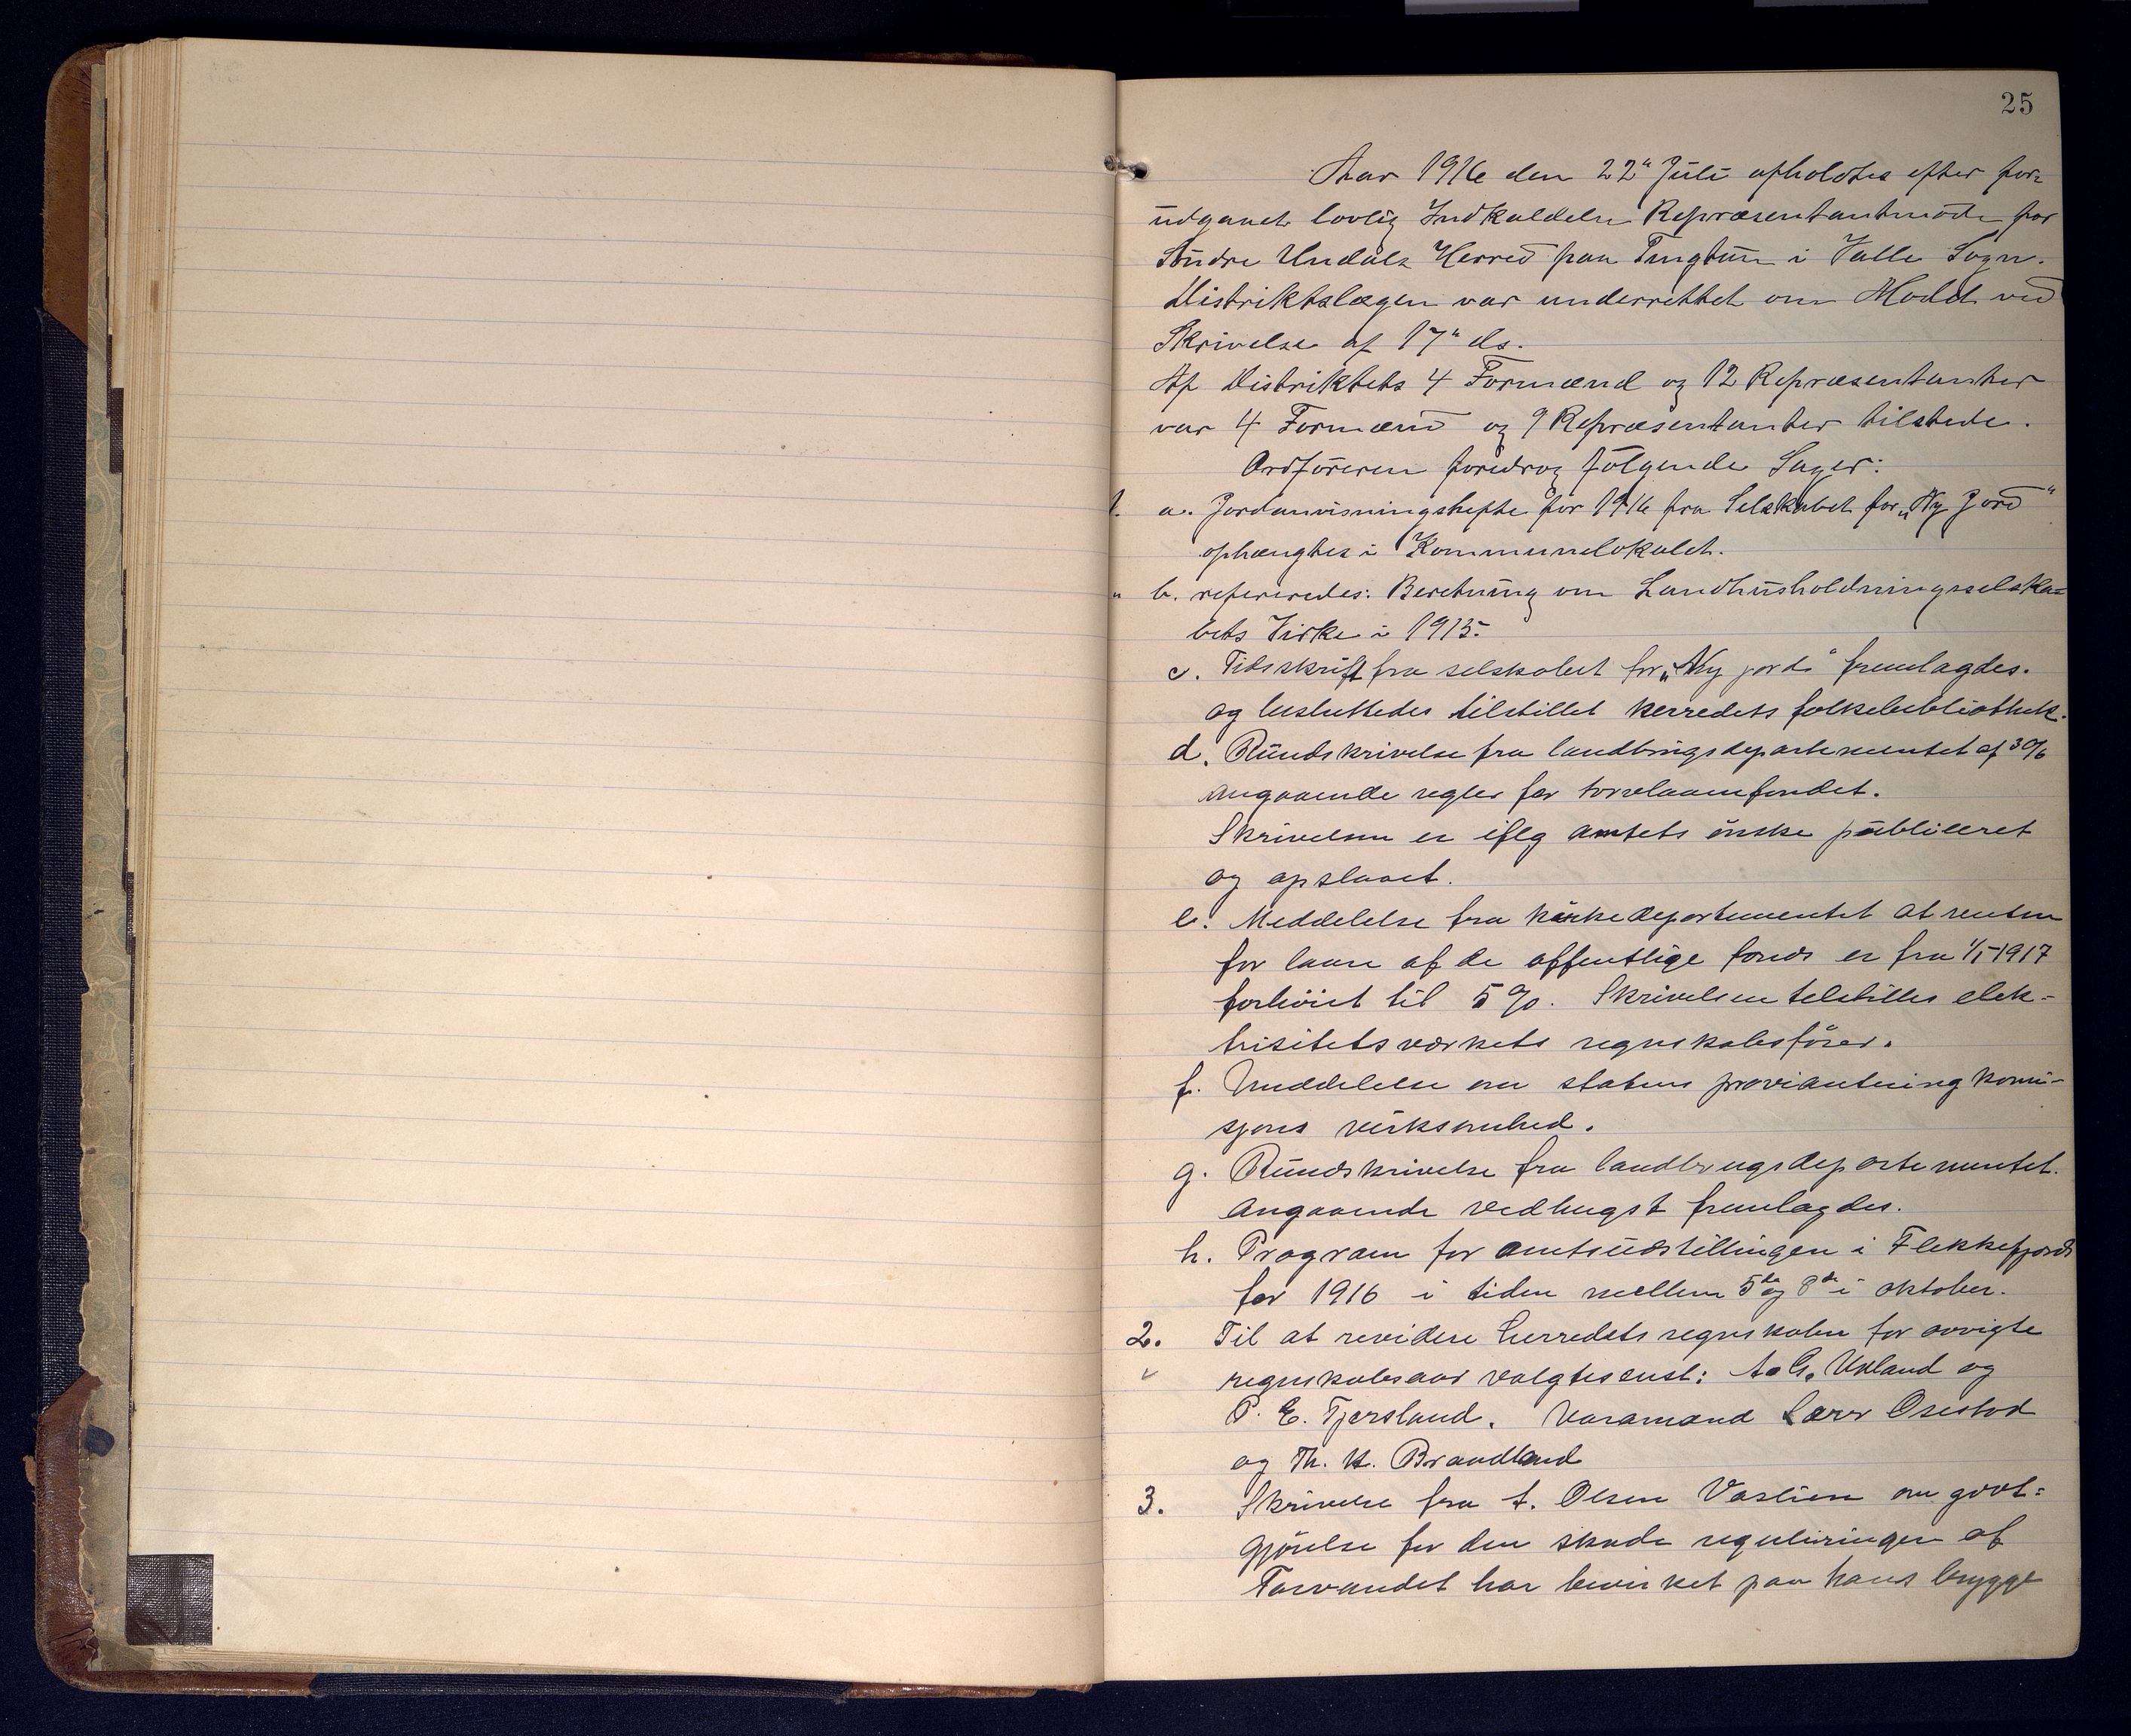 25
Aar 1916 den 22" Juli afholdtes efter for=
udgaaet lovlig Indkaldelse Repræsentantmøde for
Søndre Undals Herred paa Tingtun i Valle Sogn.
Distriktslægen var underrettet om Mødet ved
Skrivelse af 17" ds.
Af Distriktets 4 Formænd og 12 Repræsentanter
var 4 Formænd og 9 Repræsentanter tilstede.
Ordføreren foredrog følgende Sager:
1. a. Jordanvisningshefte for 1916 fra Selskabet for „Ny Jord"
ophængtes i Kommunelokalet.
" b. refereredes: Beretning om Landhusholdningsselska=
bets Virke i 1915.
c. Tidsskrift fra selskabet for „Ny jord" fremlagdes.
og besluttedes tilstillet herredets folkebibliothek.
d. Rundskrivelse fra landbrugsdepartementet af 30/6
angaaende regler for torvlaanefondet.
Skrivelsen er iflg amtets ønske publiceret
og opslaaet.
e. Meddelelse fra kirkedepartementet at renten
for laan af de offentlige fonds er fra 1/1-1917
forhøiet til 5%. Skrivelsen tilstilles elek-
trisitetsværkets regnskabsfører.
f. Meddelelse om statens proviantering komi-
sjons virksomhed.
g. Rundskrivelse fra landbrugsdepartementet.
angaaende vedhugst fremlagdes.
h. Program for amtsudstillingen i Flekkefjord
for 1916 i tiden mellem 5te og 8de i oktober.
2. Til at revidere herredets regnskaber for avvigte
regnskabsaar valgtes enst: A. G. Udland og
P. E. Tjørsland. Varamænd Osestad
og Th. K. Brandland
3. Skrivelse fra t. Olsen om godt=
gjørelse for den skade reguleringen af
Farvandet har bevirket paa hans brygge